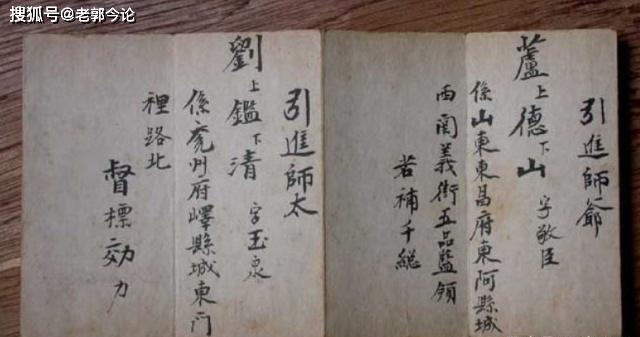 搜狐号@老郭今论
引進師爺
蘆上德下山 字敬臣
係山東東昌府東阿縣城
西關義街五品藍領
若補千総
引進師太
劉上鑑下清 字玉泉
係兖州府嶧縣城東门
裡路北
督標効力